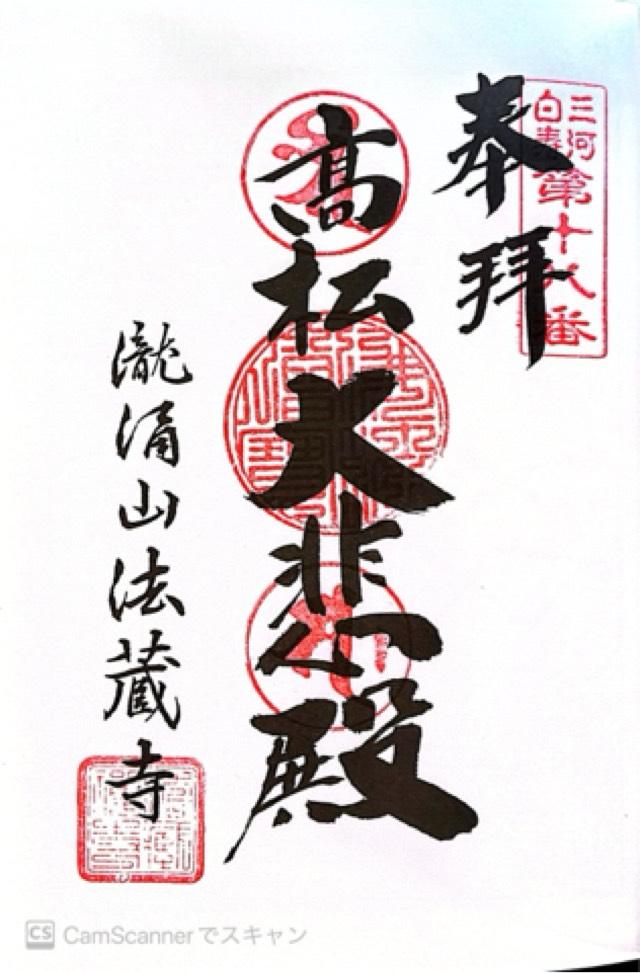 奉拝
三河
白寿
第十八番
高松大悲殿
瀧涌山法蔵寺
CS CamScannerでスキャン